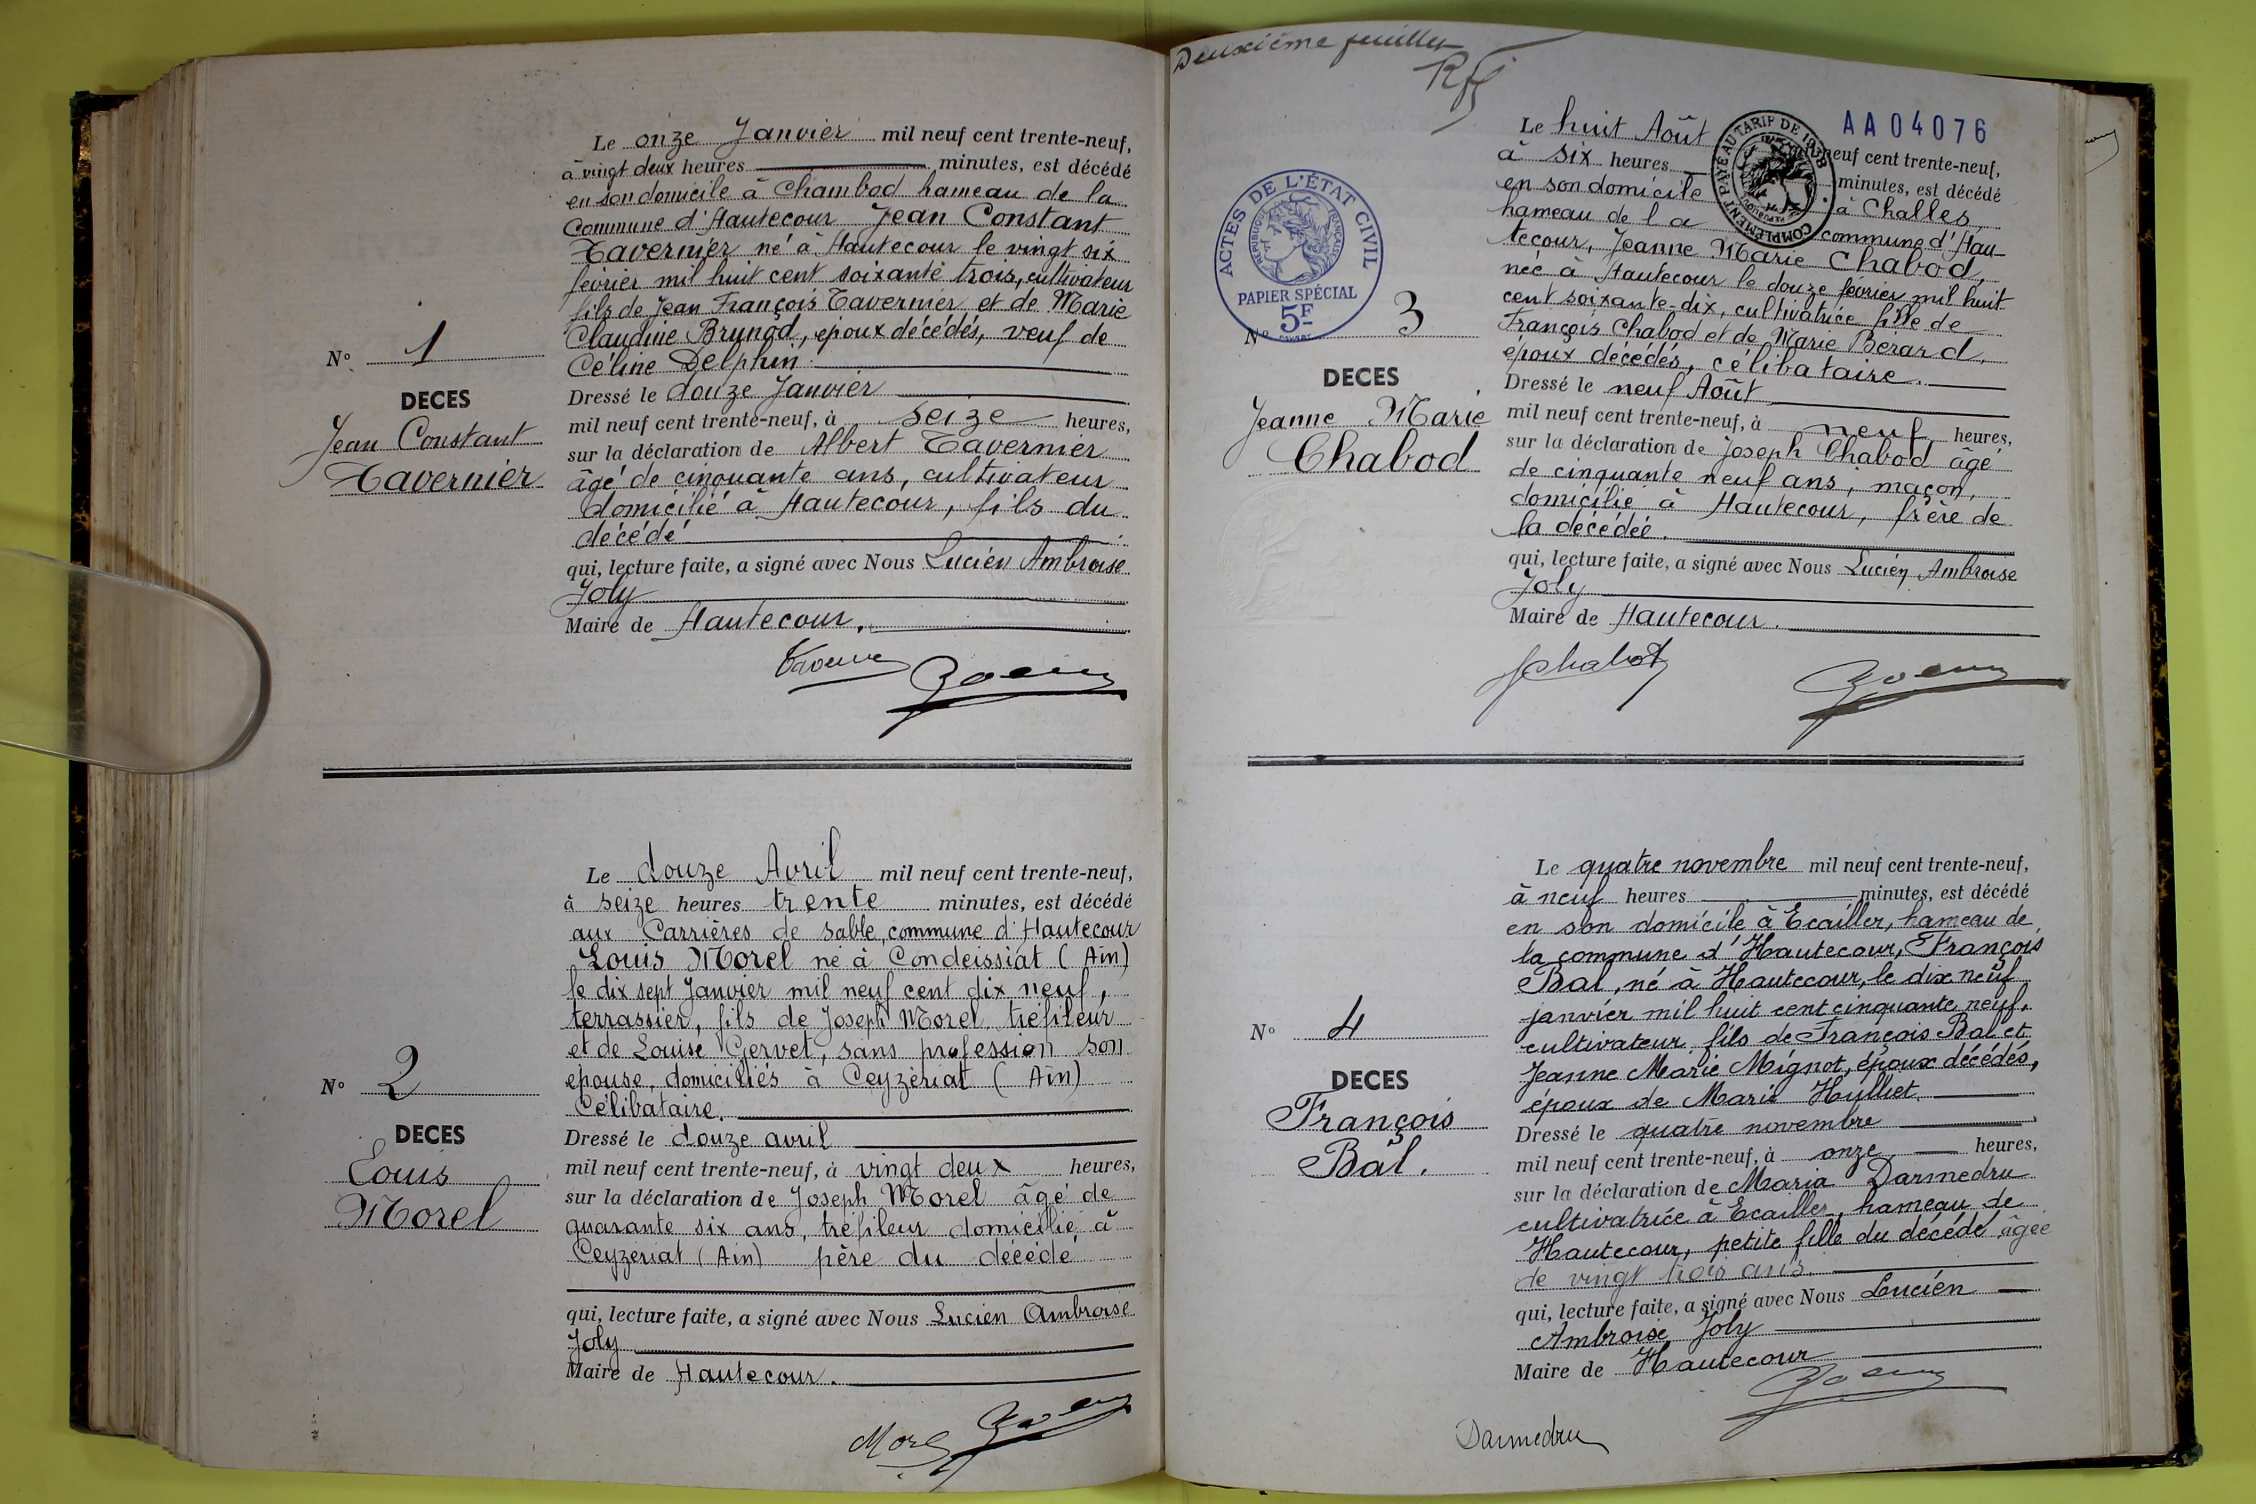 Le onze Janvier mil neuf cent trente-neuf,
à vingt deux heures minutes, est décédé
en son domicile à Chambod hameau de la
Commune d'Hautecour Jean Constant
Tavernier né à Hautecour le vingt six
février mil huit cent soixante trois, cultivateur
fils de Jean François Tavernier et de Marie
Claudine Brunod, epoux décédés, veuf de
Céline Delphin.
N° 1
DECES
Jean Constant
Tavernier
Dressé le douze Janvier
mil neuf cent trente-neuf, à seize heures,
sur la déclaration de Albert Tavernier
âgé de cinquante ans, cultivateur
domicilié à Hautecour, fils du
décédé
qui, lecture faite, a signé avec Nous Lucien Ambroise
Joly
Maire de Hautecour.
Le douze Avril mil neuf cent trente-neuf,
à seize heures trente minutes, est décédé
aux Carrières de sable, commune d'Hautecour
Louis Morel né à Condeissiat (Ain)
le dix sept Janvier mil neuf cent dix neuf,
terrassier, fils de Joseph Morel tréfileur
et de Louise Gervet, sans profession son
épouse, domiciliés à Ceyzériat (Ain)
Célibataire.
N° 2
DECES
Louis
Morel
Dressé le douze avril
mil neuf cent trente-neuf, à vingt deux heures,
sur la déclaration de Joseph Morel âgé de
quarante six ans, tréfileur domicilié à
Ceyzeriat (Ain) père du décédé
qui, lecture faite, a signé avec Nous Lucien Ambroise
Joly
Maire de Hautecour.
Morel
Deuxième feuillet
AA04076
COMPLÉMENT PAYÉ AU TARIF DE 1938
ACTES DE L'ÉTAT CIVIL
RÉPUBLIQUE FRANÇAISE
PAPIER SPÉCIAL
5F
Le huit Août neuf cent trente-neuf,
à six heures minutes, est décédé
en son domicile à Challes,
hameau de la commune d'Hau-
tecour, Jeanne Marie Chabod,
née à Hautecour le douze février mil huit
cent soixante-dix, cultivatrice fille de
François Chabod et de Marie Berard,
époux décédés, célibataire.
N° 3
DECES
Jeanne Marie
Chabod
Dressé le neuf Août
mil neuf cent trente-neuf, à neuf heures,
sur la déclaration de Joseph Chabod âgé
de cinquante neuf ans, maçon,
domicilié à Hautecour, frère de
la décédée.
qui, lecture faite, a signé avec Nous Lucien Ambroise
Joly
Maire de Hautecour.
JChabod
Le quatre novembre mil neuf cent trente-neuf,
à neuf heures minutes, est décédé
en son domicile à Ecailler, hameau de
la commune d'Hautecour, François
Bal, né à Hautecour, le dix neuf
janvier mil huit cent cinquante neuf,
cultivateur, fils de François Bal et
Jeanne Marie Mignot, époux décédés,
époux de Marie Hulliet.
N° 4
DECES
François
Bal.
Dressé le quatre novembre
mil neuf cent trente-neuf, à onze heures,
sur la déclaration de Maria Darmedru
cultivatrice à Ecailler, hameau de
Hautecour, petite fille du décédé âgée
de vingt trois ans.
qui, lecture faite, a signé avec Nous Lucien
Ambroise Joly
Maire de Hautecour
Darmedru